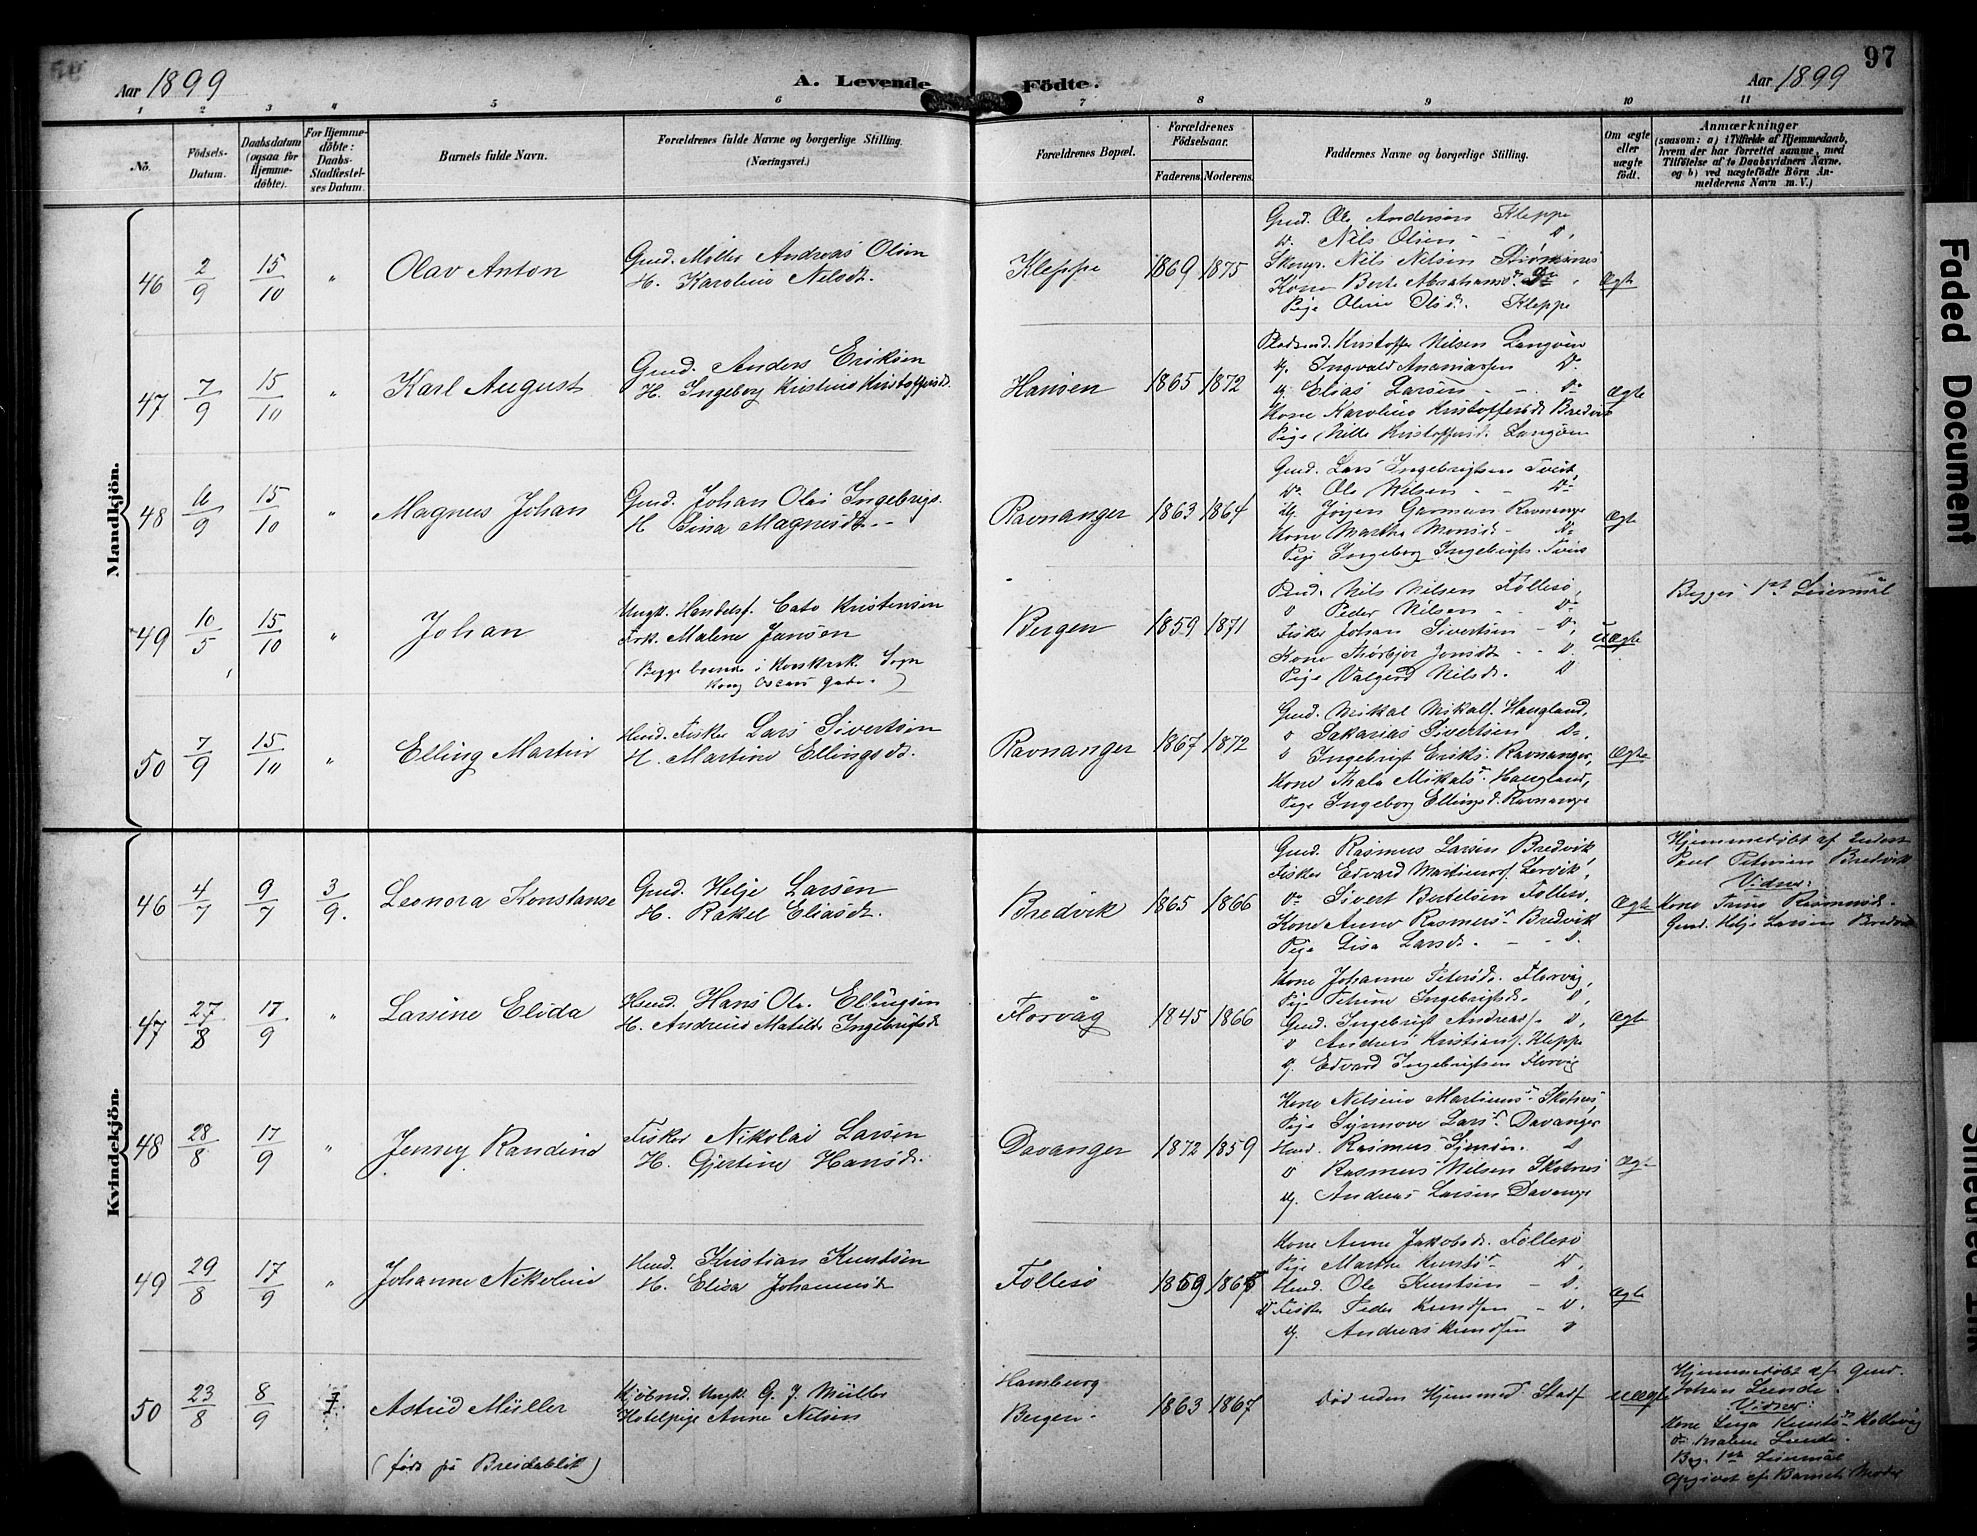 97
Aar 1899
A. Levende Födte.
Aar 1899
1 2 3 4 5 6 7 8 9 10 11
No.
Födsels-Datum.
Daabsdatum (ogsaa for Hjemme-döbte).
For Hjemme-döbte: Daabs-Stadfæstel-ses Datum.
Barnets fulde Navn.
Forældrenes fulde Navne og borgerlige Stilling.
(Næringsvei.)
Forældrenes Bopæl.
Forældrenes Födselsaar.
Faderens. Moderens.
Faddernes Navne og borgerlige Stilling.
Om ægte eller uægte födt.
Anmærkninger
(saasom: a) i Tilfælde af Hjemmedaab,
hvem der har forrettet samme, med
Tilföielse af to Daabsvidners Navne.
og b) ved uægtefödte Börn An-
melderens Navn m. V.)
Mandkjön.
46 2/9 15/10 " Olav Anton
Gmd. Andreas Olsen
H. Karoline Nilsdt.
Kleppe 1869 1875
Gmd. Ole Andersen Kleppe
Do. Nils Olsen - - D.
Nils Nilsen
Kone Berte
Pige Oline Olsd. Kleppe
Ægte
47 7/9 15/10 " Karl August
Gmd. Anders Eriksen
H. Ingeborg Kristine Kristoffersd.
Hansen 1865 1872
Kristoffer Nilsen Langöen
Ingvald Ananiassen Do.
Elias Larsen - - Do
Kone Karoline Kristoffersd. Bredvik
Pige Nille Kristoffersd. Langöen
Ægte
48 11/9 15/10 " Magnus Johan
Gmd. Johan Olai Ingebrigs.
H. Sina Magnusdt. -
Ravnanger 1863 1864
Gmd. Lars Ingebrigtsen Tveit
Do. Ole Nilsen - - Do
Jörgen Ravnanger
Kone Marthe Monsd. - Do
Pige Ingeborg Ingebrigts.
Ægte
49 10/5 15/10 " Johan
Ungk. Handelsf. Cato Kristensen
Frk. Malene Jansen
(Begge boende i Korskirk. Sogn
Kong Oscars gade.)
Bergen 1859 1871
Nils Nilsen Follesö,
D Peder Nilsen - - Do
Fisker Johan Sivertsen - D,
Kone Thorbjor Jonsdt - - D.
Pige Valgerd Nilsd. D
Uægte
Begges 1st Leiermål
50 7/9 15/10 " Elling Martin
Hmd. Fisker Lars Sivertsen
H. Martine Ellingsdt.
Ravnanger 1867 1872
Gmd. Mikal Mikals. Haugland,
D Sakarias Sivertsen Do,
D Ingebrigt Eriks. Ravnanger,
Kone Thala Mikalsd. Haugland,
Pige Ingeborg Ellingsd. Ravnanger
Ægte
Kvindekjön.
46 4/7 9/7 3/9. Leonora Konstanse
Gmd. Helje Larsen
H. Rakel Eliasdt.
Bredvik 1865 1866
Gmd. Rasmus Larsen Bredvik,
Fisker Edvard Martinus. Lervik,
Do Sivert Bertelsen Follesö,
Kone Anne Rasmusd. Bredvik
Pige Lisa Larsd. - - D.
Ægte
Hjemmedöbt af
Petersen Bredvik
Vidner:
Kone
Gmd. Helje Larsen Bredvik
47 27/8 17/9 " Larsine Elida
Hmd. Hans Ole Ellingsen
H. Andrine Matilde Ingebrigtsd.
Florvåg 1845 1866
Kone Johanne Petersd. Florvåg,
Pige Petrine Ingebrigtsd. D,
Gmd. Ingebrigt Andreas. - D,
D Andreas Kristians. Kleppe
U. Edvard Ingebrigtsen Florvåg
Ægte
48 28/8 17/9 " Jenny Randine
Fisker Nikolai Larsen
H. Gjertine Hansd.
Davanger 1872 1859
Kone Nilsine Martinusd. Skotnes,
Pige Synnove Larsd. Davanger
Hmd. Rasmus Simonsen. D
D Rasmus Nilsen Skotnes
U. Andreas Larsen Davanger
Ægte
49 29/8 17/9 " Johanne Nikoline
Hmd. Kristian Knutsen
H. Elisa Johannesdt
Follesö 1859 1865
Kone Anne Jakobsd. Follesö
Pige Marthe Knutsd D,
Hmd. Ole Knutsen - D.
D Fisker Peder Knudsen - D.
U. Andreas Knudsen D
Ægte
50 23/8 8/9 Astrid Müller
(född på Breidablik)
Kjöbmd. Ungk. G. J. Müller
Hotelpige Anne Nilsen
Hamburg
Bergen. 1863 1867
Död uden Hjemmed. Stadf
Uægte
Hjemmedöbt af Gmd.
Johan Lunde.
Vidner:
Kone Inga Knutsd.
Do Malene Lunde.
Beg. 1st Leiermål
Opgivet af Barnets Moder
Faded Document
Smeared Ink